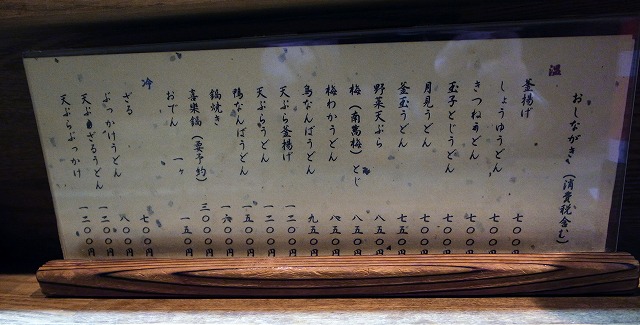 おしながき(消費税含む)
温
釜揚げ 七〇〇円
しょうゆうどん 七〇〇円
きつねうどん 七〇〇円
玉子とじうどん 七〇〇円
月見うどん 七〇〇円
釜玉うどん 七五〇円
野菜天ぷら 八五〇円
梅(南高梅)とじ 八五〇円
梅わかうどん 八五〇円
鳥なんばうどん 九五〇円
天ぷら釜揚げ 一二〇〇円
天ぷらうどん 一二〇〇円
鴨なんばうどん 一五〇〇円
鍋焼き 一六〇〇円
喜樂鍋(要予約) 三〇〇〇円
おでん 一ヶ 一五〇円
冷
ざる 七〇〇円
ぶっかけうどん 八〇〇円
天ぷらざるうどん 一二〇〇円
天ぷらぶっかけ 一二〇〇円